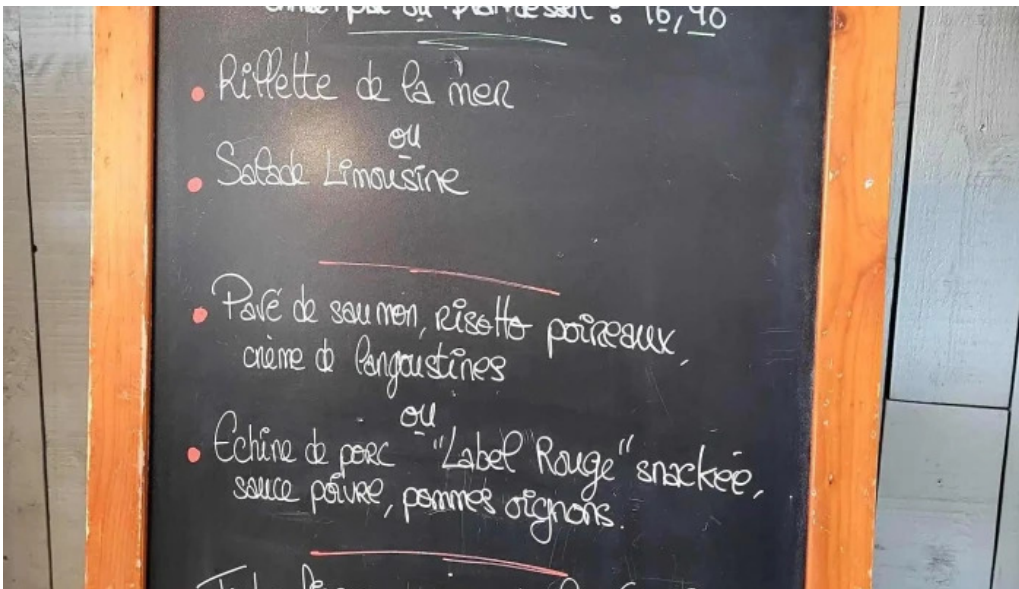 plat ou plat dessert : 16,90
• Rillette de la mer
ou
• Salade Limousine
• Pavé de saumon, risotto poireaux,
crème de langoustines
ou
• Echine de porc "Label Rouge" snackée,
sauce poivre, pommes oignons.